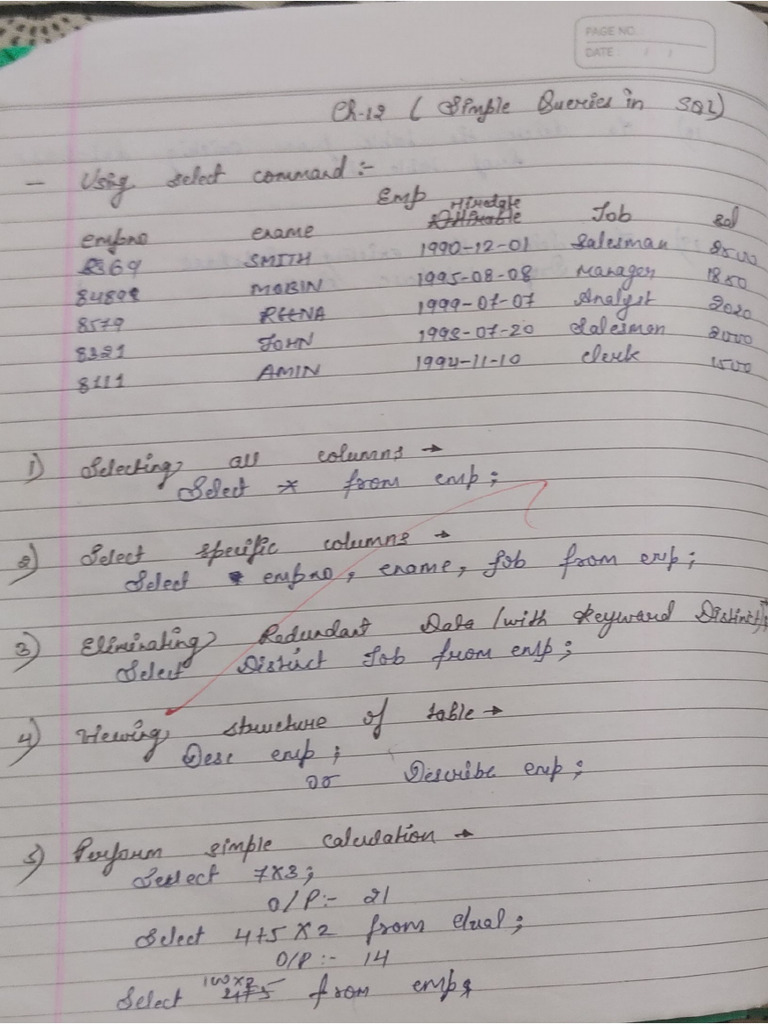 PAGE NO.
DATE / /
Ch-12 ( Simple Queries in SQL)
- Using select command :-
Emp
empno ename Hiredate Job sal
8369 SMITH 1990-12-01 Salesman 2500
MOBIN 1995-08-08 Manager 1850
8579 REENA 1999-07-07 Analyst 2020
8321 JOHN 1993-07-20 Salesman 2000
8111 AMIN 1994-11-10 clerk 1500
1) Selecting all columns →
Select * from emp ;
2) Select specific columns →
Select empno, ename, job from emp ;
3) Eliminating Redundant Data (with keyword Distinct) ;
Select Distinct Job from emp ;
4) Viewing structure of table →
Desc emp ;
or Describe emp ;
5) Perform simple calculation →
Select 7x3 ;
O/P :- 21
Select 4+5 x 2 from dual ;
O/P :- 14
Select 100x2 from emp;